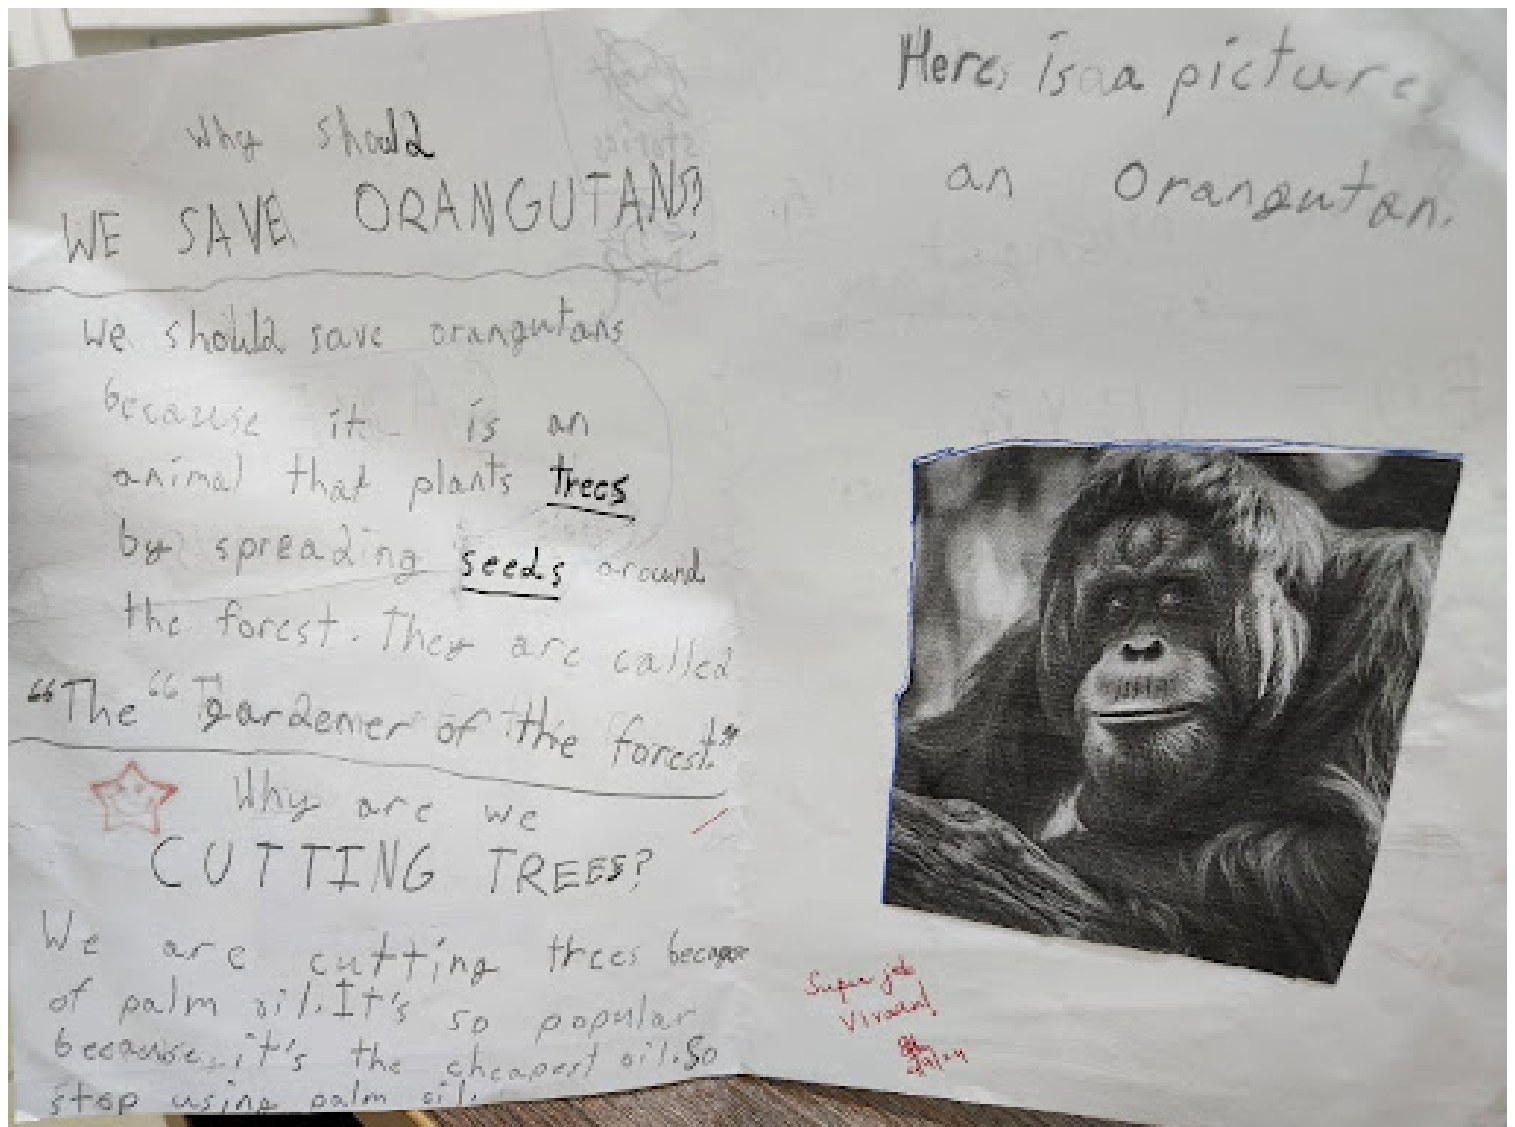 Why should
WE SAVE ORANGUTANS?
We should save orangutans
because it is an
animal that plants trees
by spreading seeds around
the forest. They are called
“The “Gardener of the forest.”
Why are we
CUTTING TREES?
We are cutting trees because
of palm oil. It's so popular
because it's the cheapest oil. So
stop using palm oil.
Here is a a picture
an Orangutan.
Super job
stories